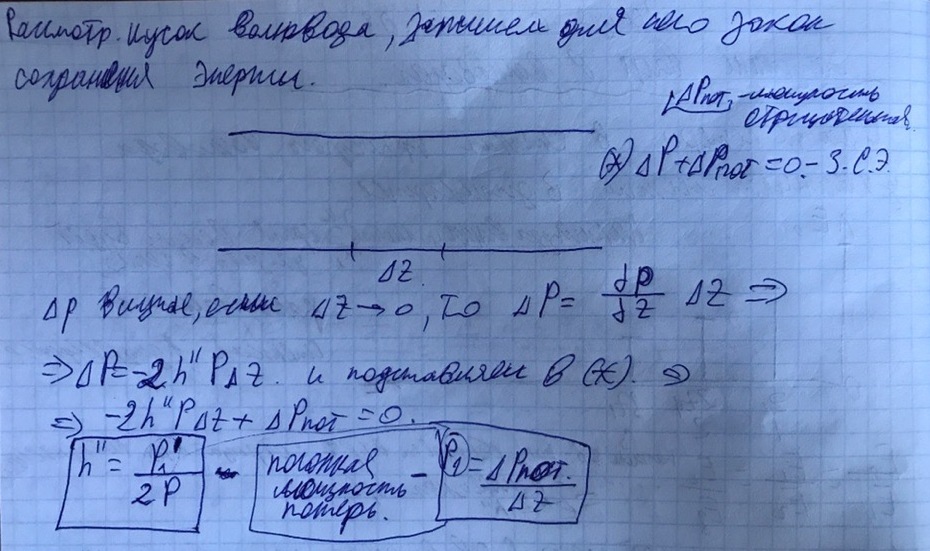 Рассмотр. кусок волновода, запишем для него закон
сохранения энергии.
ΔPпот, - мощность
отрицательная.
(*) ΔP + ΔPпот = 0. - З.С.Э.
ΔZ
ΔP , если ΔZ → 0, то ΔP = dP/dZ ΔZ ⇒
⇒ ΔP = -2h'' P ΔZ. и подставляем в (*). ⇒
⇒ -2h'' P ΔZ + ΔPпот = 0.
h'' = P₁/2P - погонная мощность потерь. - P₁ = ΔPпот./ΔZ